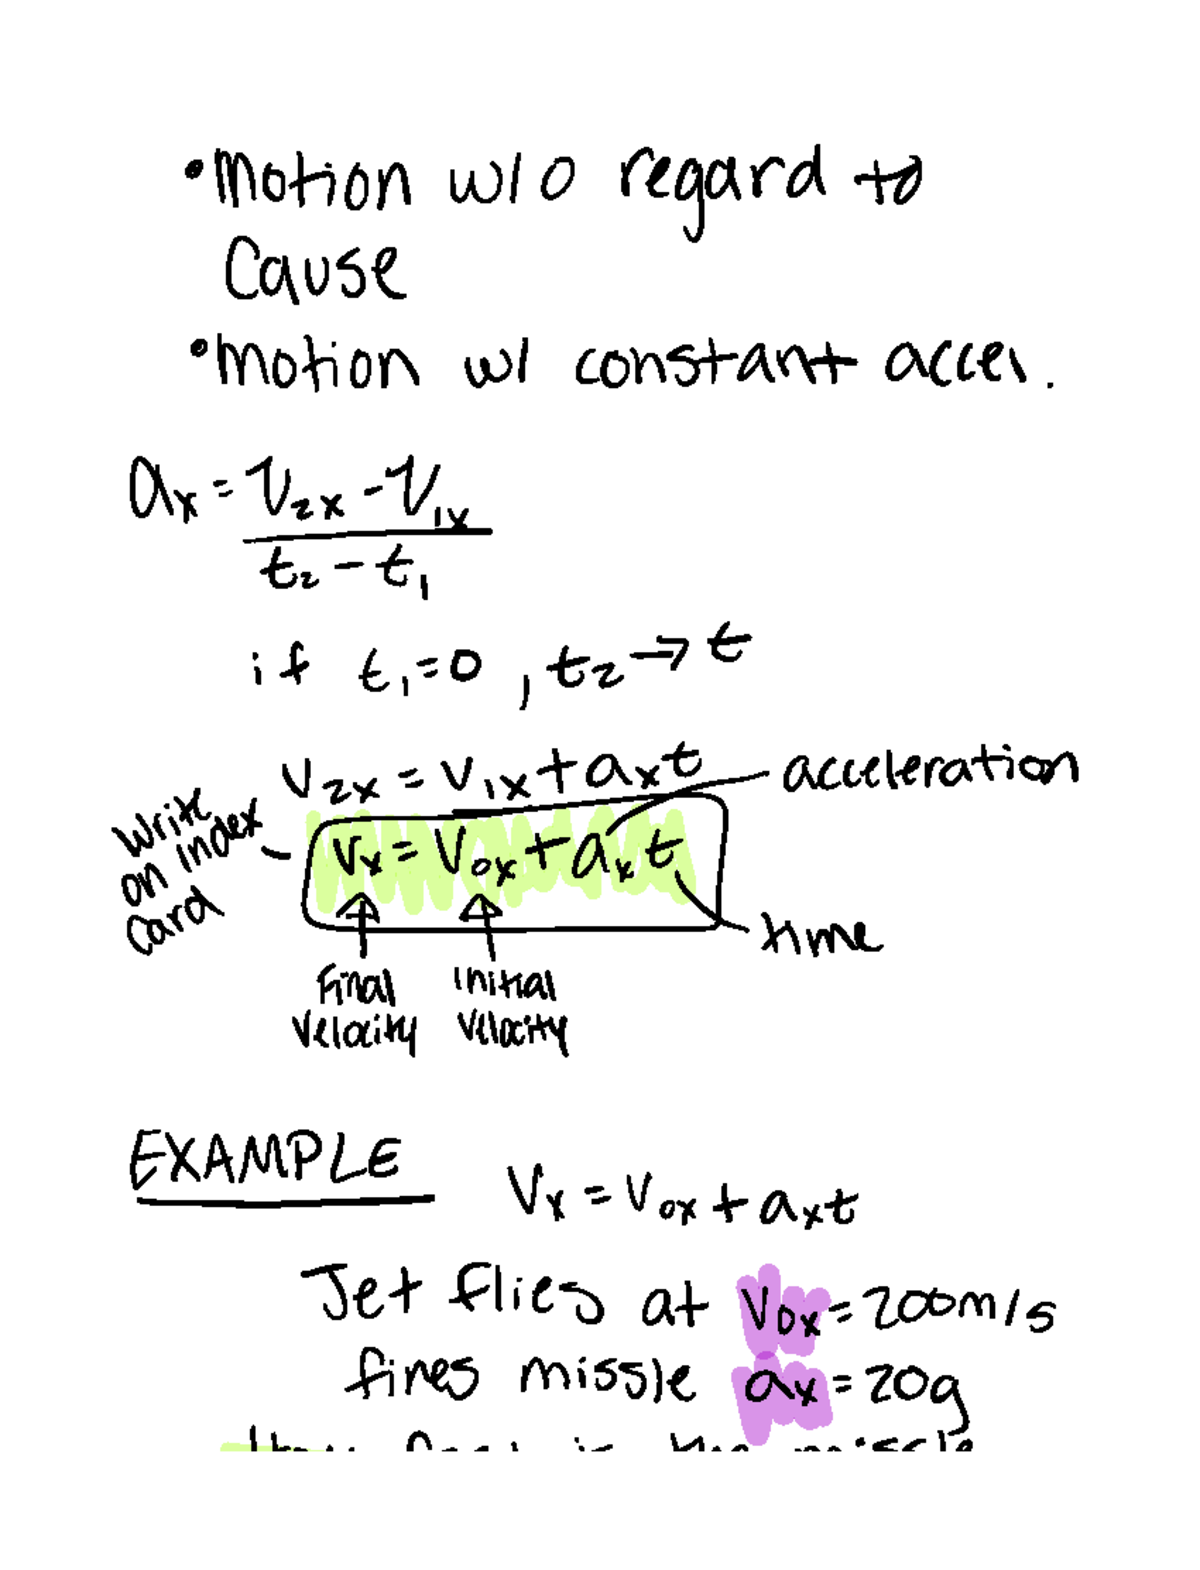 •Motion w/o regard to
Cause
•Motion w/ constant accel.
ax = V2x - V1x
t2 - t1
if t1=0, t2 → t
V2x = V1x + axt
acceleration
Write
on index
Card
Vx = V0x + axt
time
Final
Velocity
Initial
Velocity
EXAMPLE
Vx = V0x + axt
Jet flies at V0x = 200m/s
fires missle ax = 20g
is the missle